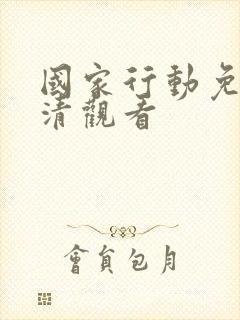 國家行動免
清觀看
會員包月